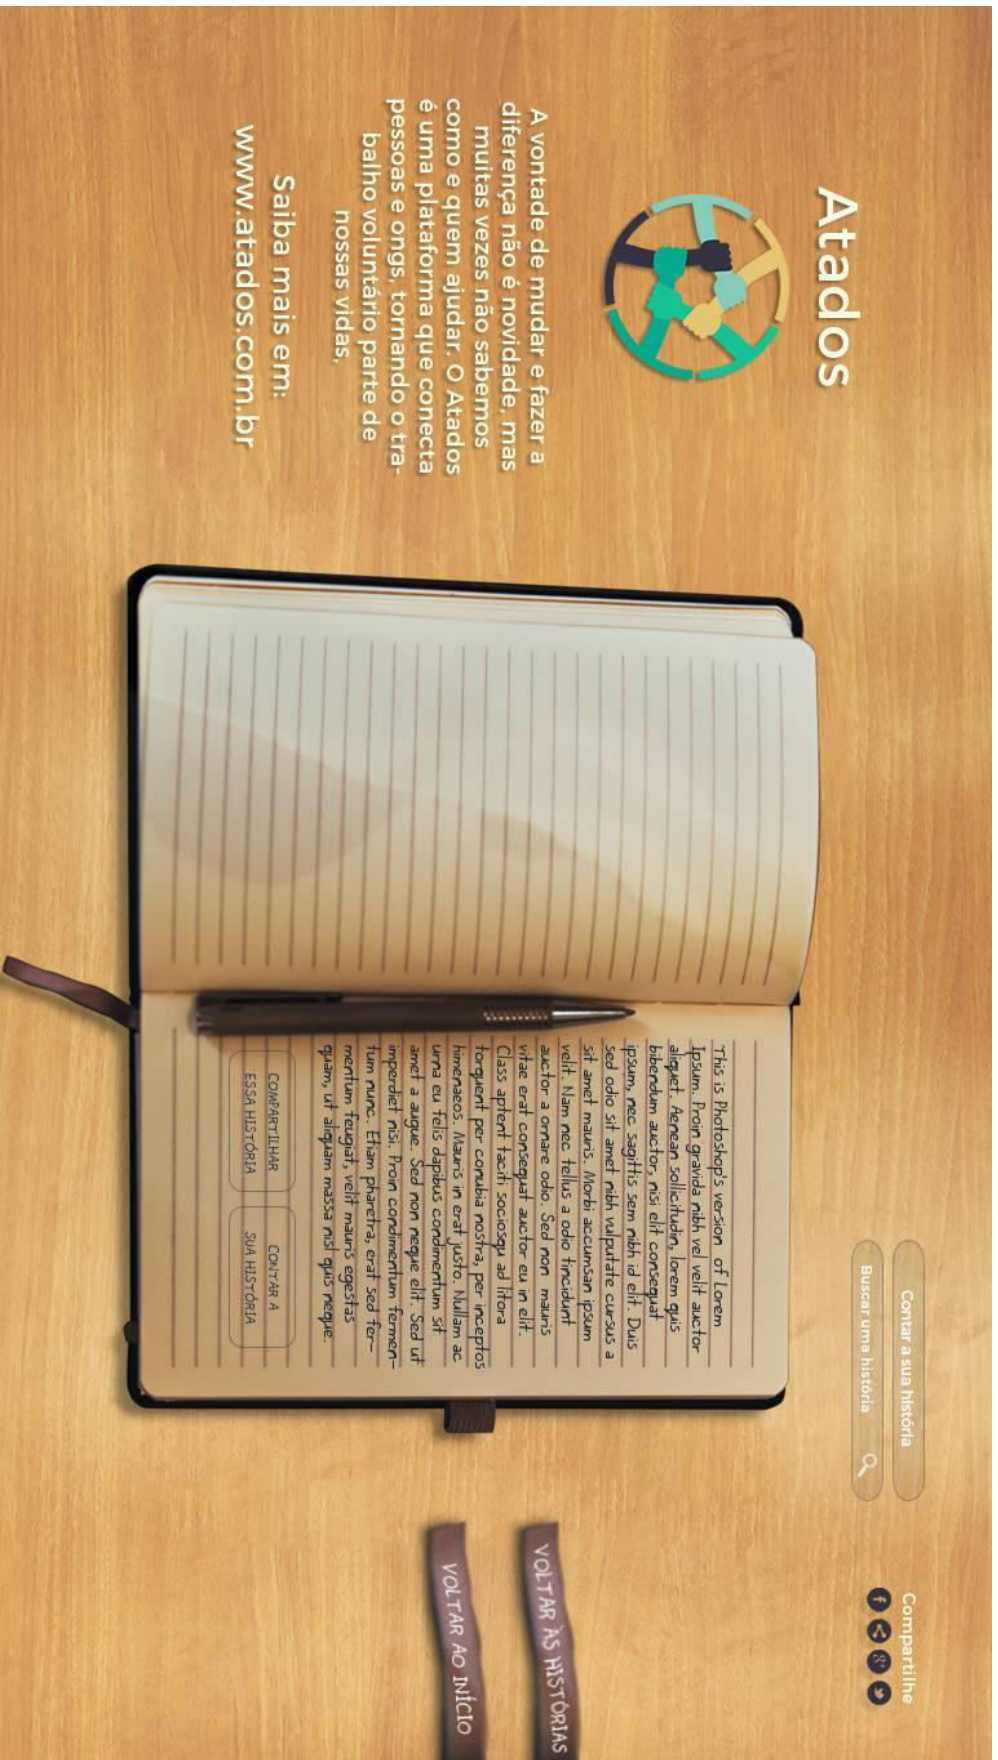 Atados
A vontade de mudar e fazer a
diferença não é novidade, mas
muitas vezes não sabemos
como e quem ajudar. O Atados
é uma plataforma que conecta
pessoas e ongs, tornando o tra-
balho voluntário parte de
nossas vidas.
Saiba mais em:
www.atados.com.br
This is Photoshop's version of Lorem
Ipsum. Proin gravida nibh vel velit auctor
aliquet. Aenean sollicitudin, lorem quis
bibendum auctor, nisi elit consequat
ipsum, nec sagittis sem nibh id elit. Duis
sed odio sit amet nibh vulputate cursus a
sit amet mauris. Morbi accumsan ipsum
velit. Nam nec tellus a odio tincidunt
auctor a ornare odio. Sed non mauris
vitae erat consequat auctor eu in elit.
Class aptent taciti sociosqu ad litora
torquent per conubia nostra, per inceptos
himenaeos. Mauris in erat justo. Nullam ac
urna eu felis dapibus condimentum sit
amet a augue. Sed non neque elit. Sed ut
imperdiet nisi. Proin condimentum fermen-
tum nunc. Etiam pharetra, erat sed fer-
mentum feugiat, velit mauris egestas
quam, ut aliquam massa nisl quis neque.
COMPARTILHAR
ESSA HISTÓRIA
CONTAR A
SUA HISTÓRIA
Contar a sua história
Buscar uma história
Compartilhe
VOLTAR ÀS HISTÓRIAS
VOLTAR AO INÍCIO